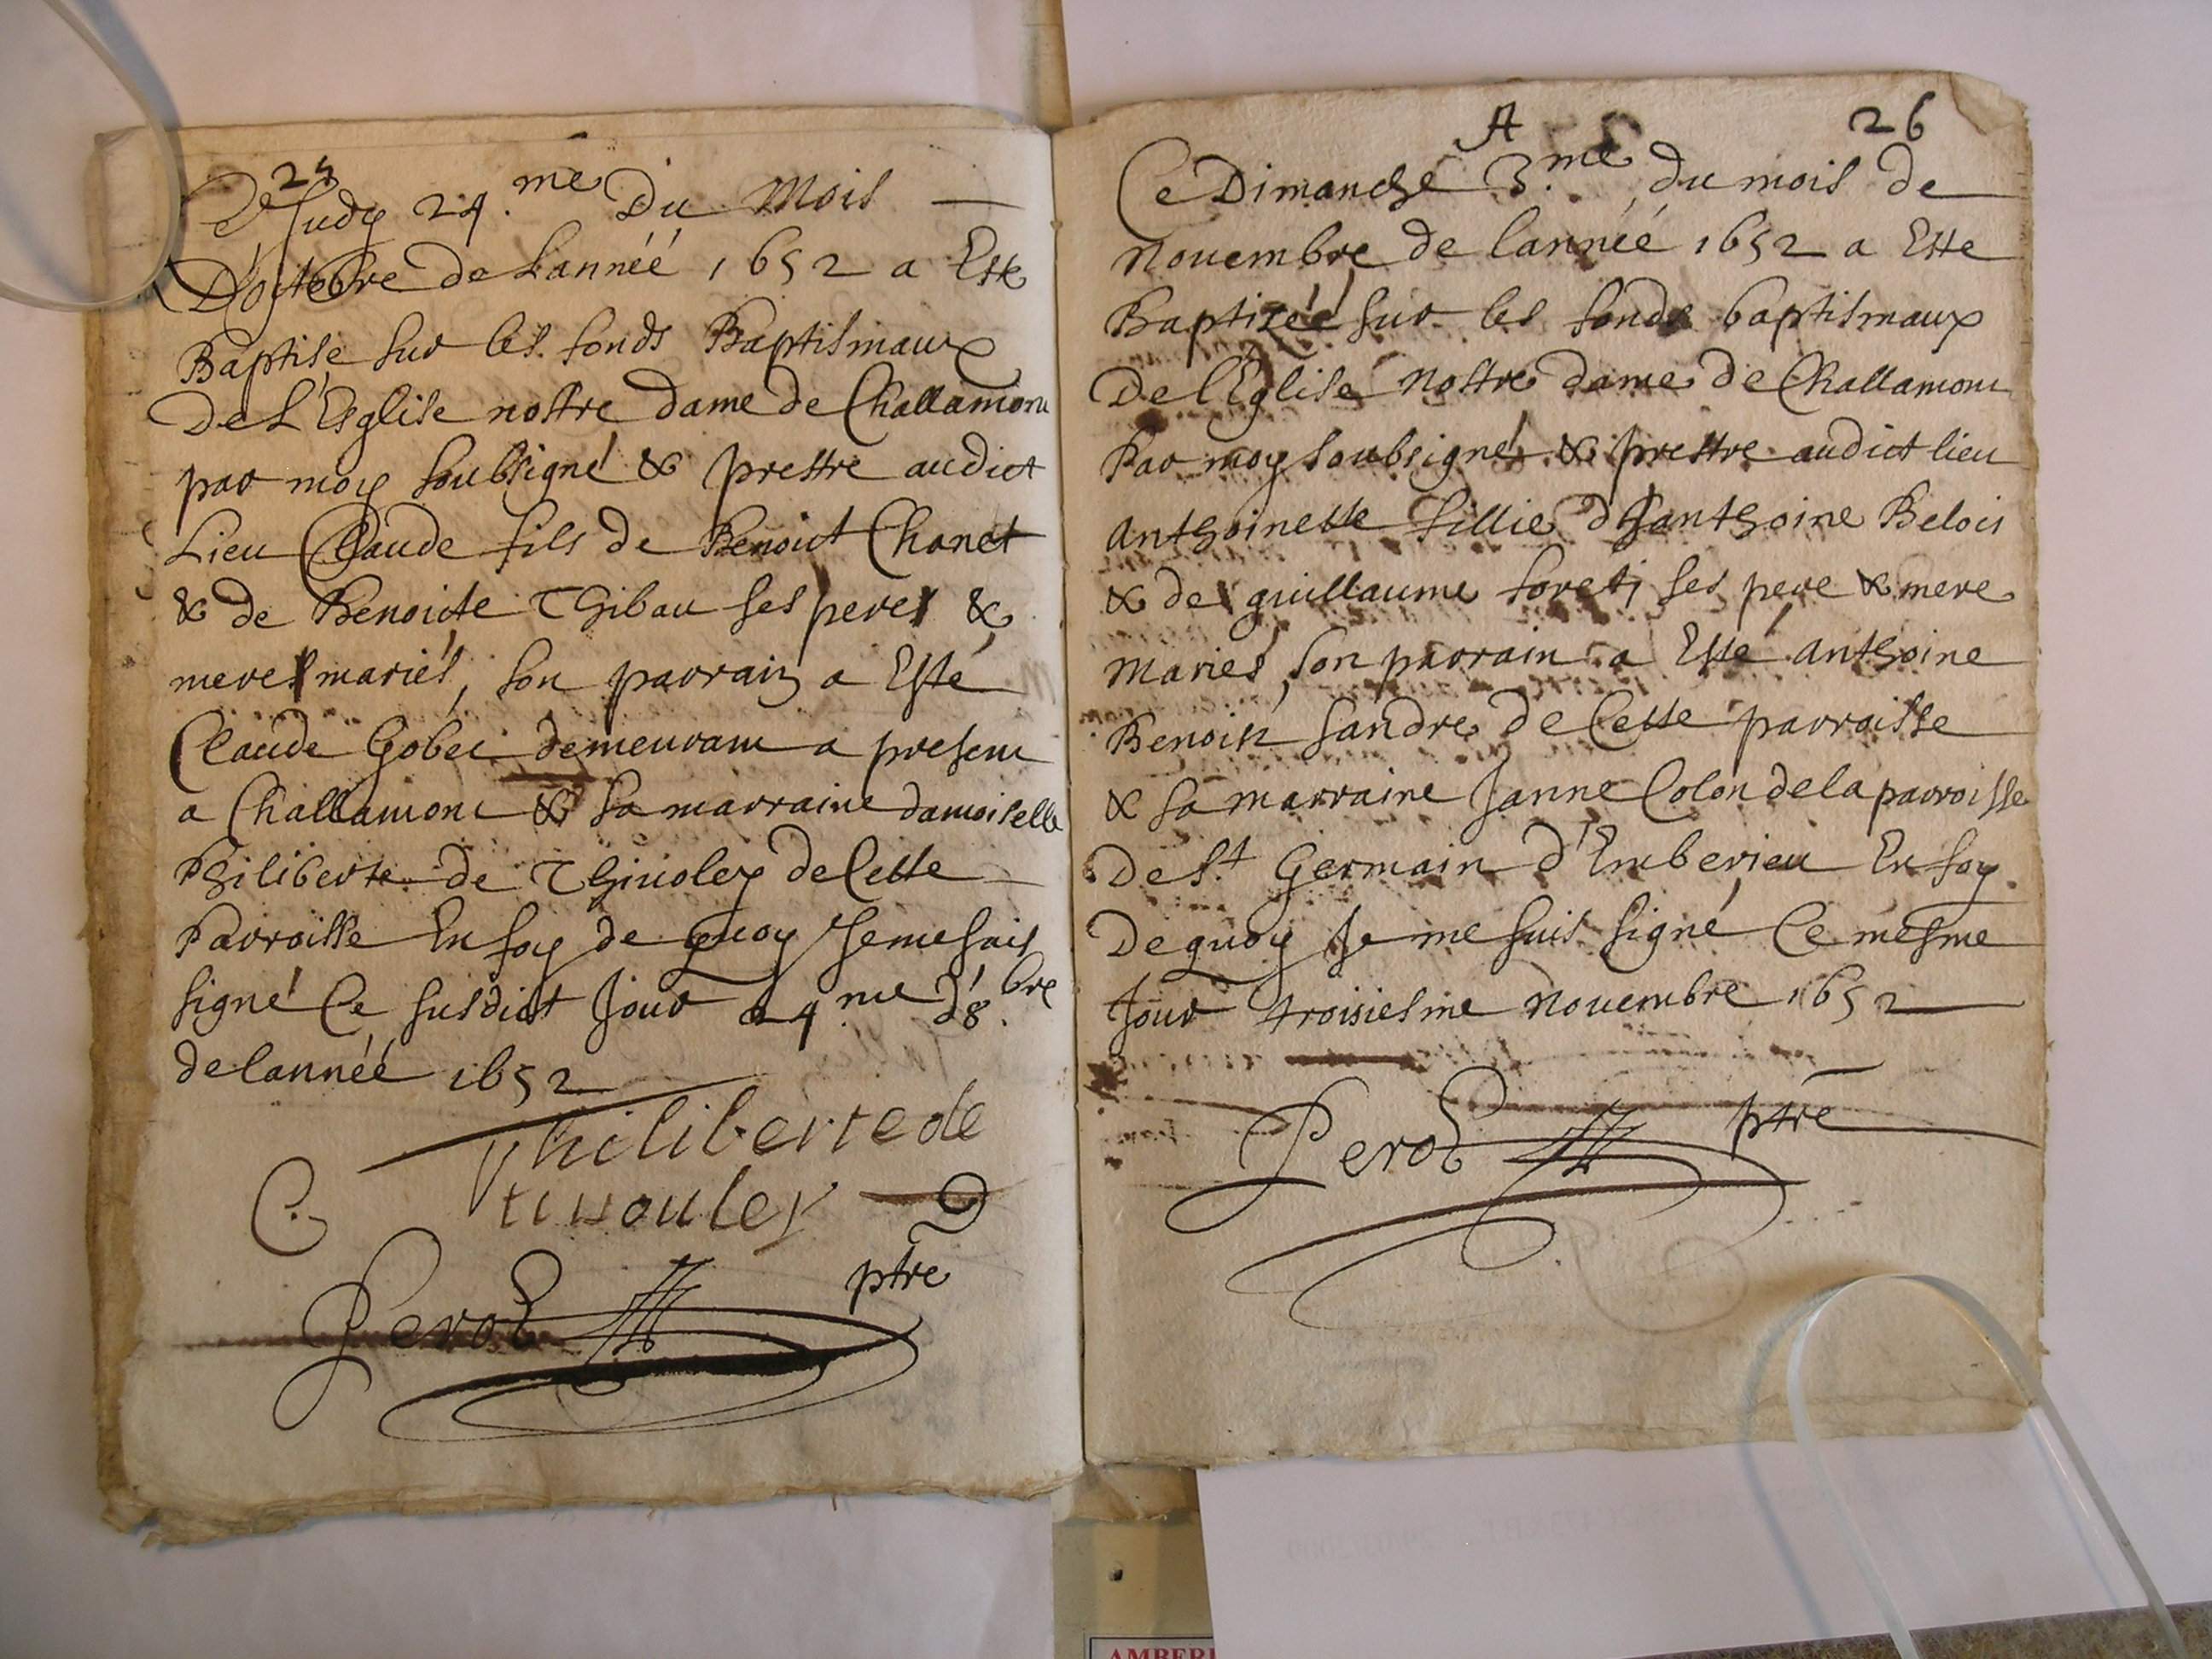 24
Ce Judy 24.me Du Mois
D'octobre de Lannéé 1652 a Esté
Baptise sur les fonds Baptismaux
De L'Esglise nostre dame de Challamont
par moy soubsigné & prestre audict
Lieu Claude fils de Benoict Chanet
& de Benoicte Thibau ses peres &
meres mariés, son parrain a Esté
Claude Gobet demeurant a present
a Challamont & sa marraine damoiselle
Philiberte de Thivoley de Cette
Parroisse En foy de quoy Je me suis
signé Ce susdict Jour 24.me d'8.bre
de lannéé 1652
philiberte de
tivouley
C.
Perod ptre
A 26
Ce Dimanche 3.me du mois de
Novembre de lannéé 1652 a Esté
Baptizéé sur les fonds baptismaux
De l'Eglise Nostre dame de Challamont
Par moy soubsigné & prestre audict lieu
Anthoinette fillie d'anthoine Belois
& de guillaume foreti ses pere & mere
Mariés, son parrain a Esté Anthoine
Benoist sandre de Cette parroisse
& sa marraine Janne Colon de la parroisse
De St Germain d'Emberieu En foy
De quoy Je me suis signé Ce mesme
Jour troisiesme Novembre 1652
Perod ptre
AMBERI